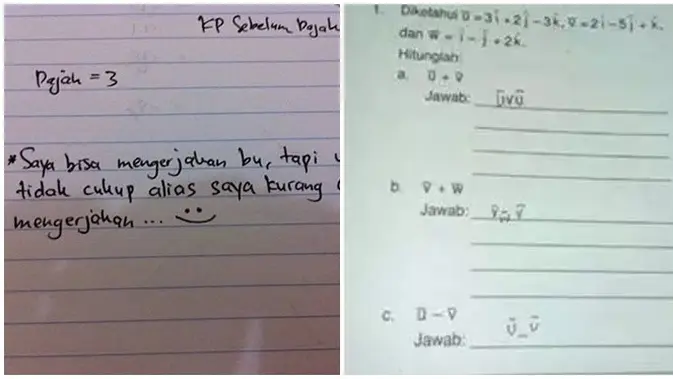 KP Sebelum Pajak
Pajak = 3
*Saya bisa mengerjakan bu, tapi
tidak cukup alias saya kurang
mengerjakan ...
1. Diketahui ū = 3i + 2j - 3k, v̄ = 2i - 5j + k,
dan w̄ = i - j + 2k.
Hitunglah:
a. ū + v̄
Jawab:
b. v̄ + w̄
Jawab:
c. ū - v̄
Jawab: ū_v̄